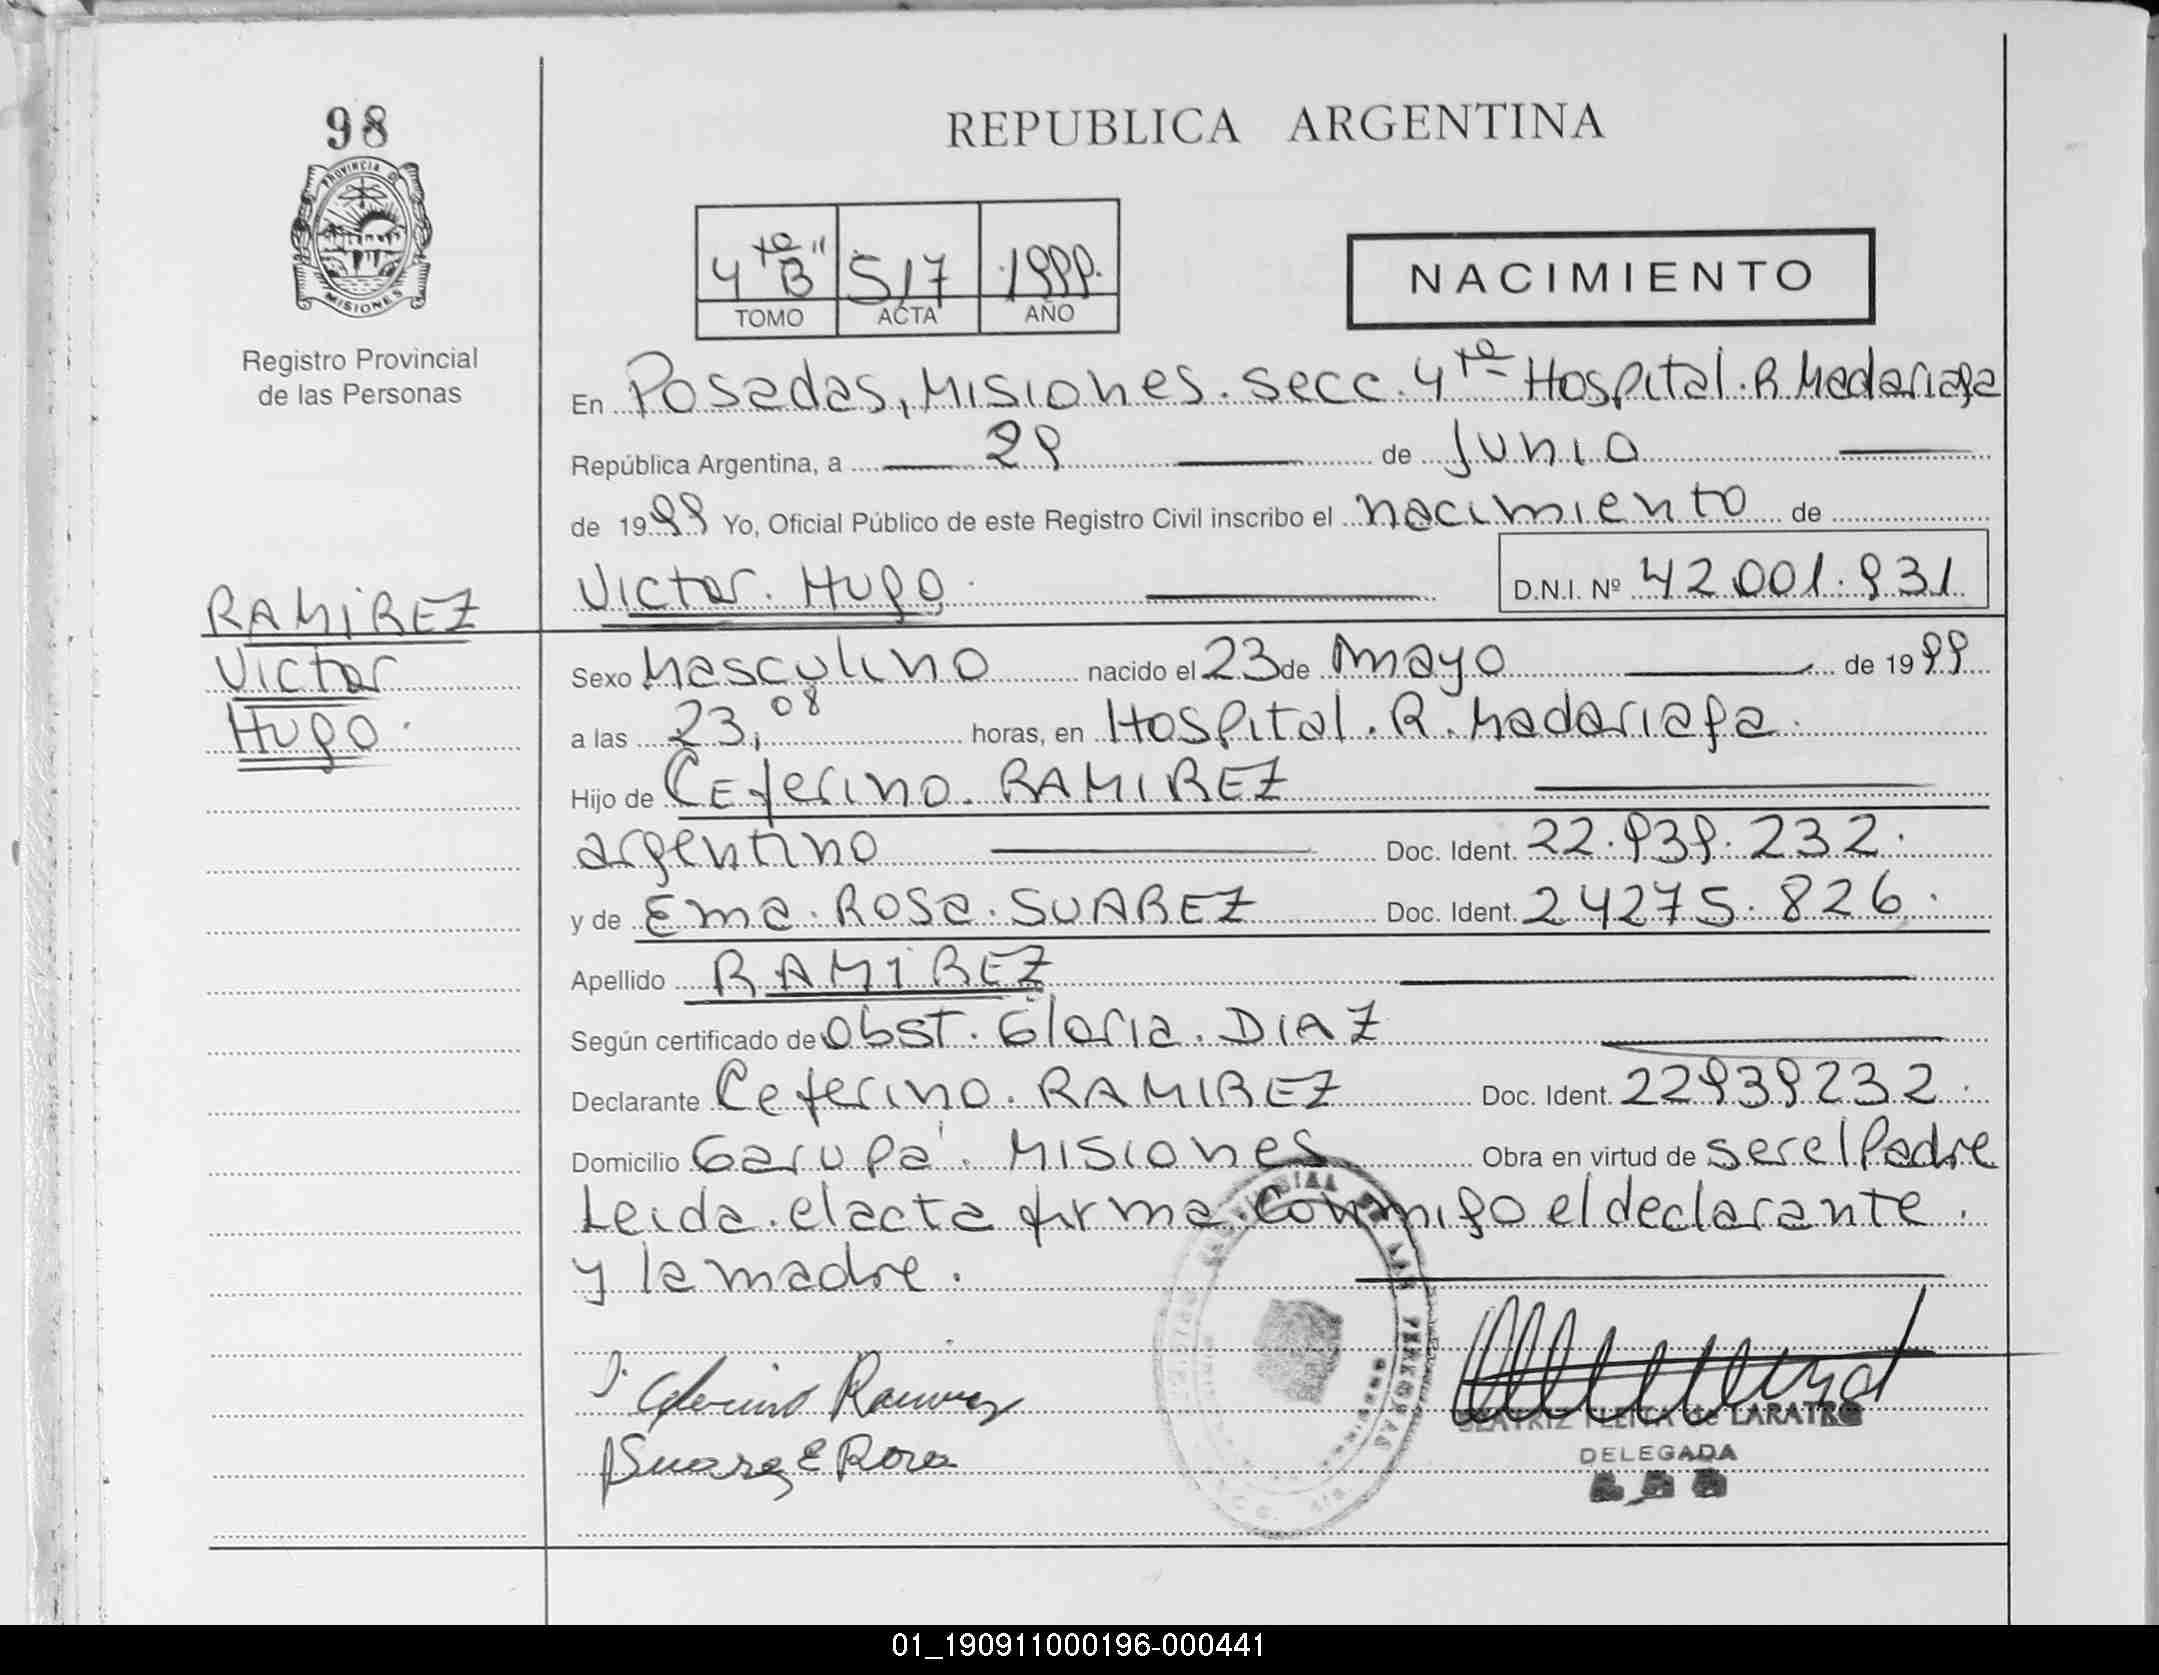 98
PROVINCIA D
MISIONES
Registro Provincial
de las Personas
REPUBLICA ARGENTINA
4ta "B" 517 1999.
TOMO ACTA AÑO
NACIMIENTO
En Posadas, Misiones. secc. 4ta Hospital. R. Madariaga
República Argentina, a 29 de Junio
de 1999 Yo, Oficial Público de este Registro Civil inscribo el nacimiento de
Victor. Hugo. D.N.I. Nº 42.001.931
RAMIREZ
Victor
Hugo.
Sexo Masculino nacido el 23 de Mayo de 1999
a las 23,08 horas, en Hospital. R. Madariaga.
Hijo de Ceferino. RAMIREZ
argentino Doc. Ident. 22.939.232.
y de Ema. Rosa. SUAREZ Doc. Ident. 24275.826.
Apellido RAMIREZ
Según certificado de Obst. Gloria. DIAZ
Declarante Ceferino. RAMIREZ Doc. Ident. 22939232.
Domicilio Garupá. Misiones Obra en virtud de ser el Padre
Leida. el acta firma conmigo el declarante.
y la madre.
Ceferino Ramirez
Suarez E Rosa
BEATRIZ FLEITA de LARATRO
DELEGADA
01_190911000196-000441